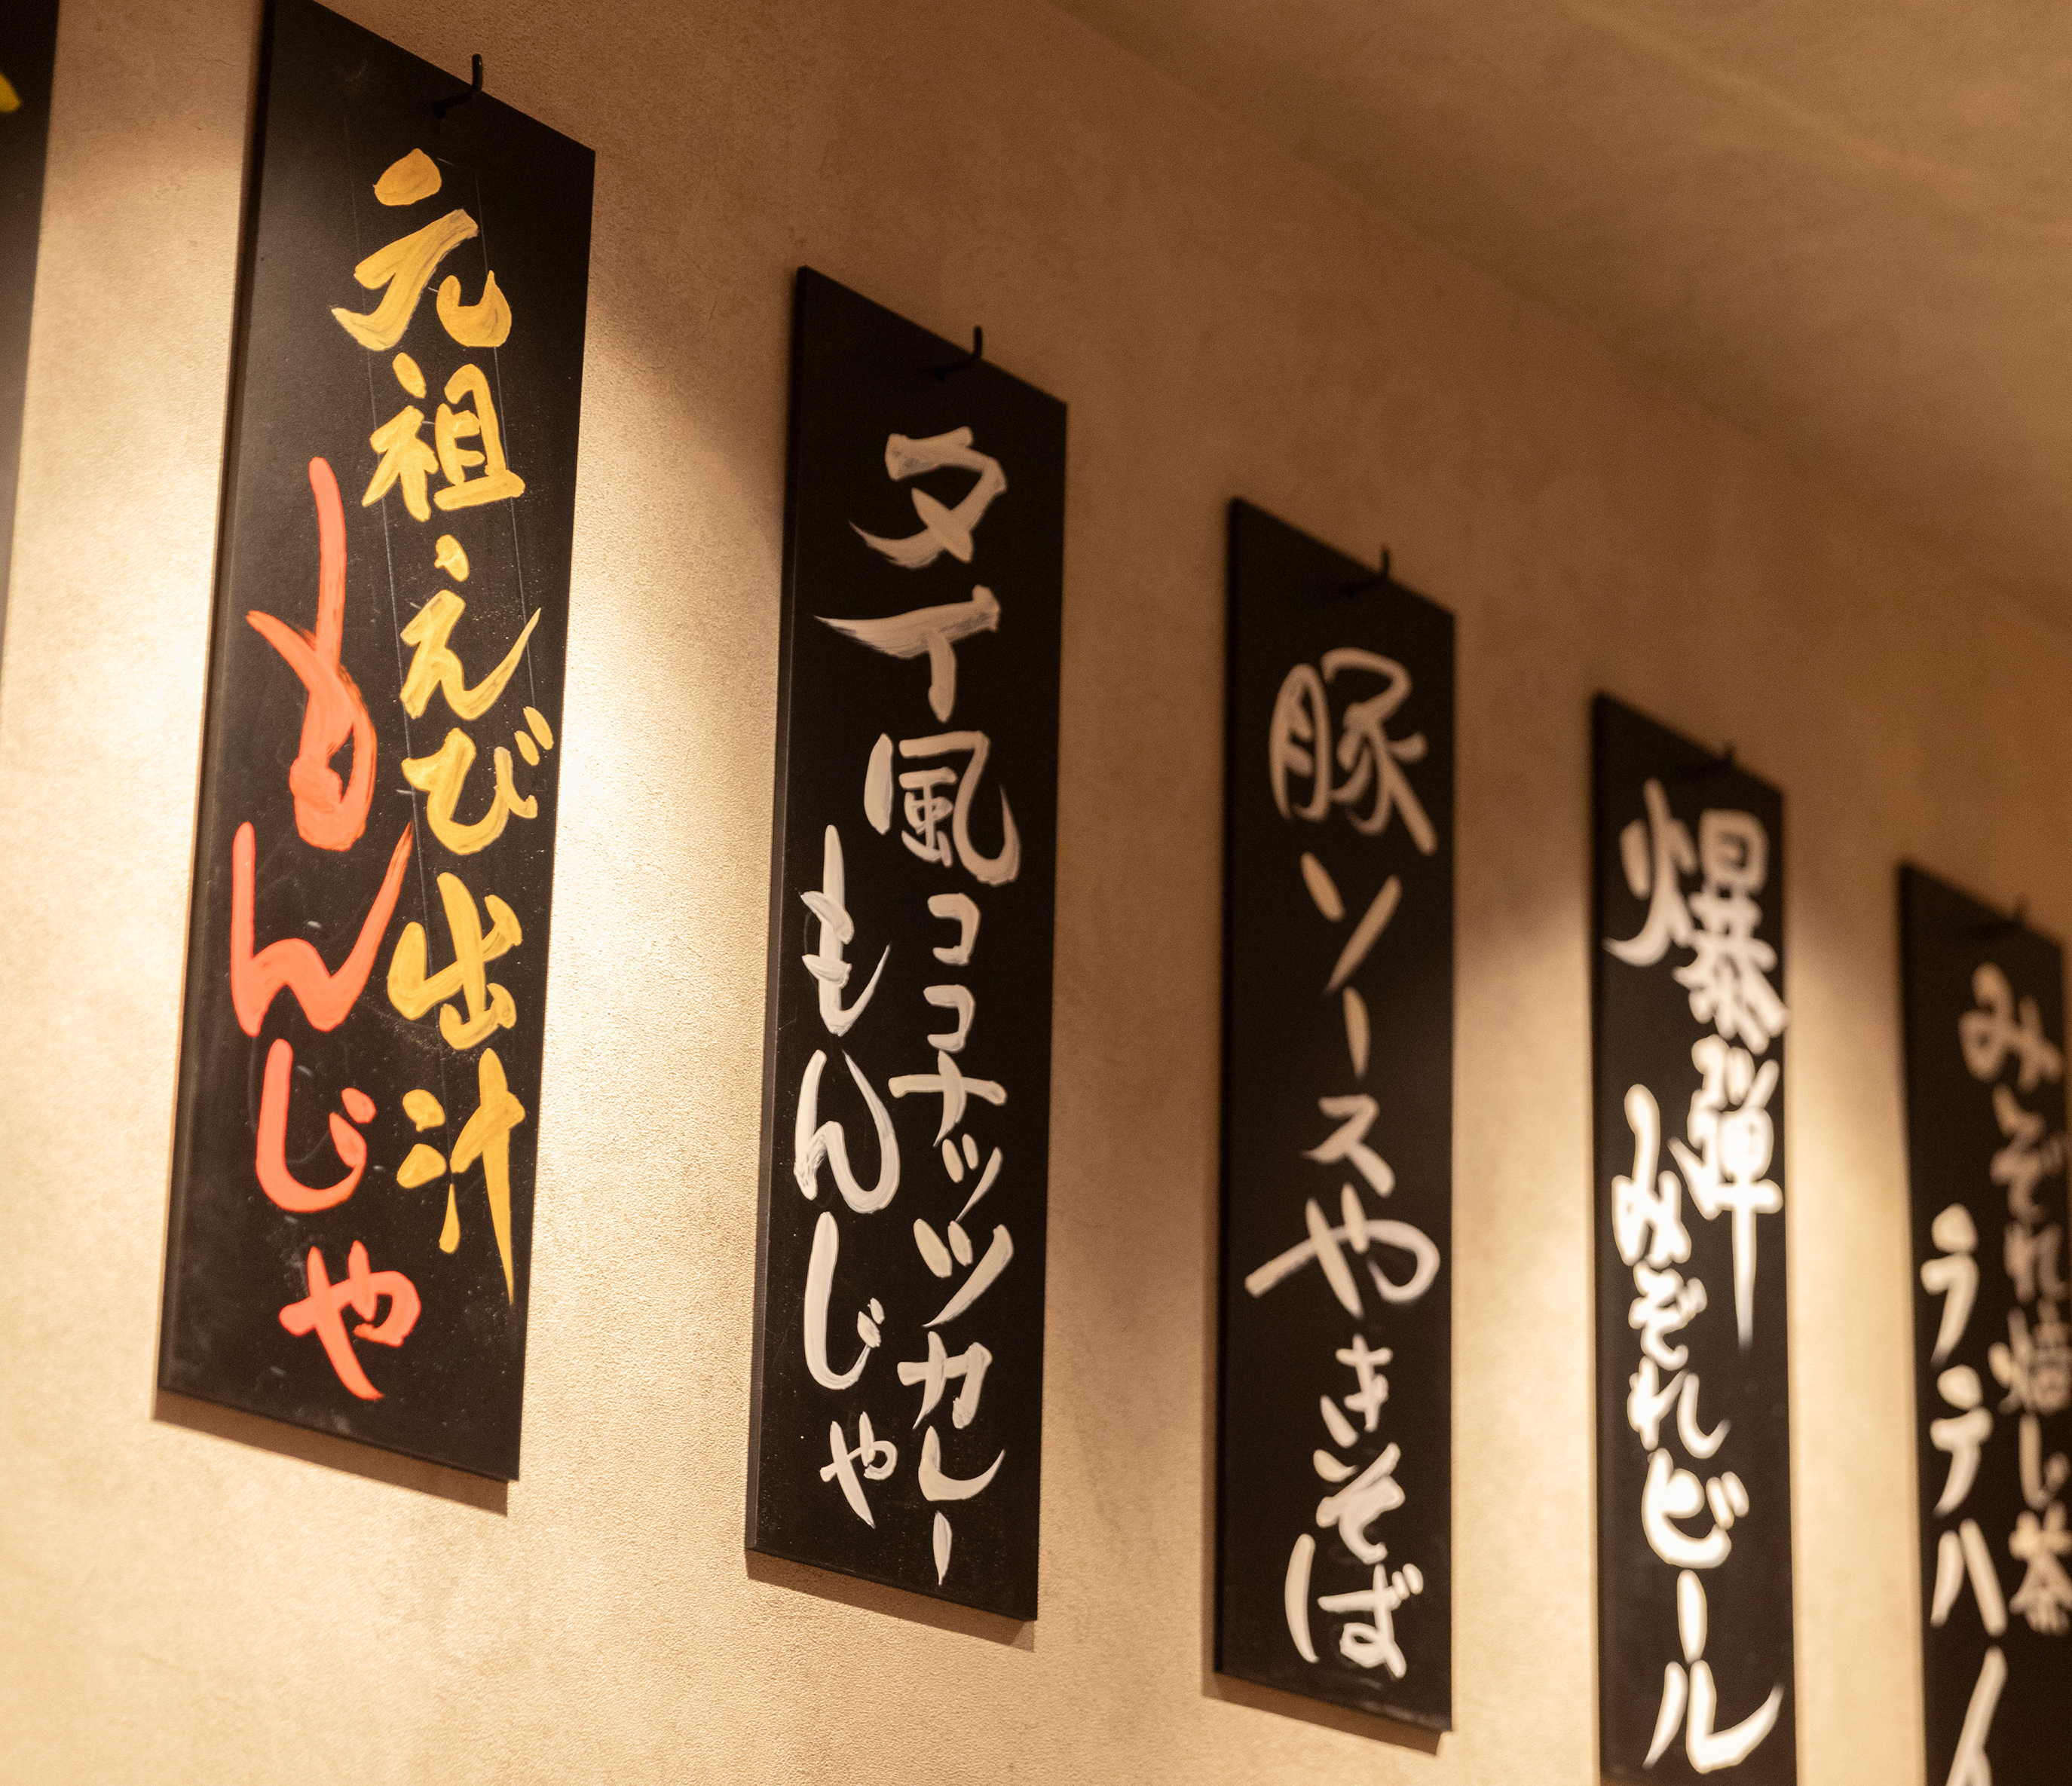 元祖えび出汁
もんじゃ
タイ風ココナッツカレー
もんじゃ
豚ソースやきそば
爆弾
みぞれビール
みぞれ焙じ茶
ラテハイ